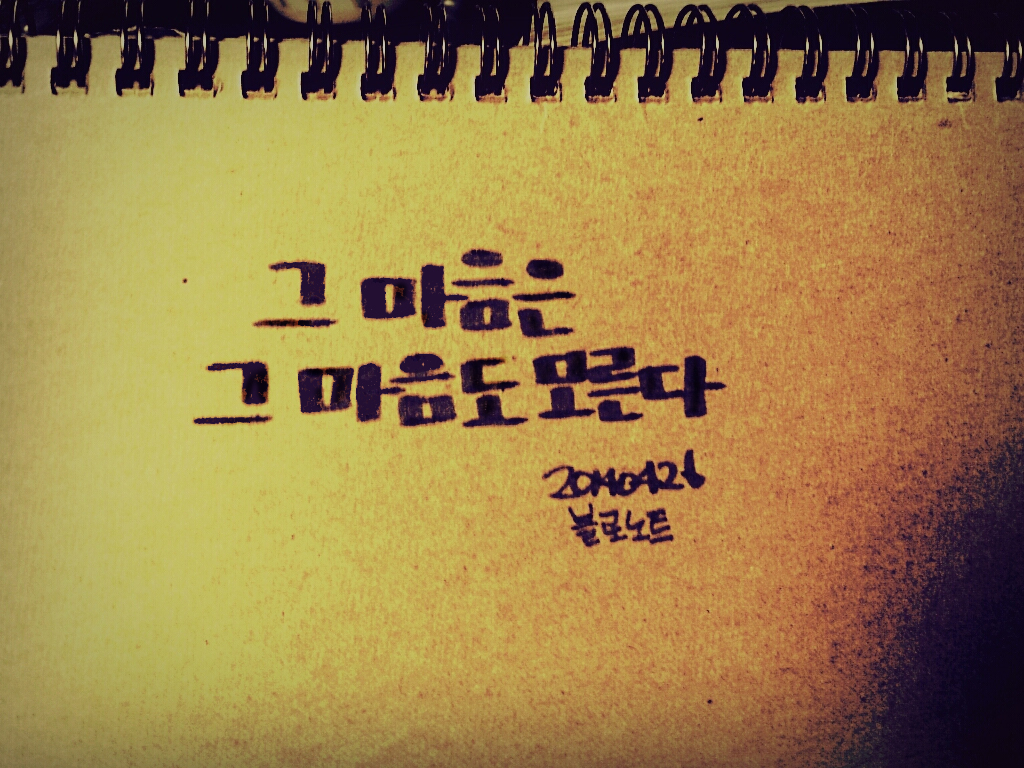 그 마음은
그 마음도 모른다
20140426
블로노트